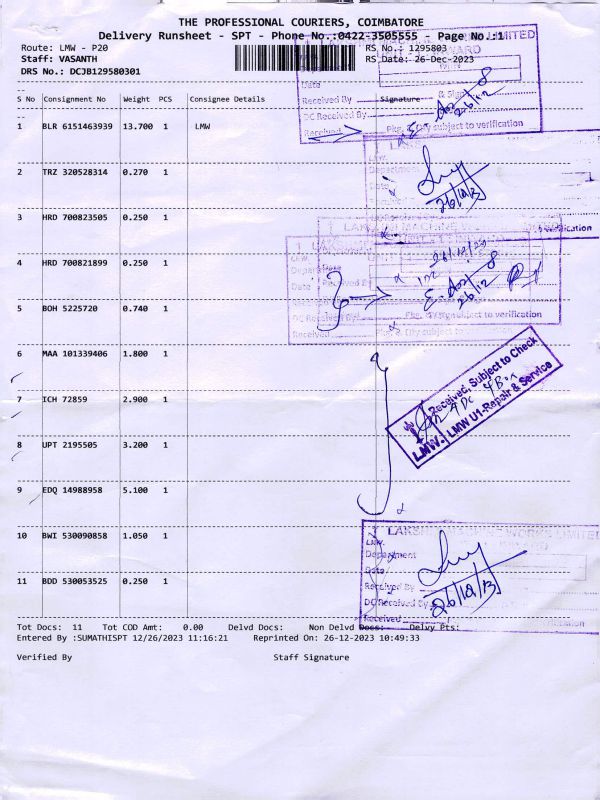 THE PROFESSIONAL COURIERS, COIMBATORE
Delivery Runsheet - SPT - Phone No.:0422-3505555 - Page No.:1
Route: LMW - P20 RS No.: 1295803
Staff: VASANTH RS Date: 26-Dec-2023
DRS No.: DCJB129580301
S No Consignment No Weight PCS Consignee Details Signature
1 BLR 6151463939 13.700 1 LMW
2 TRZ 320528314 0.270 1
3 HRD 700823505 0.250 1
4 HRD 700821899 0.250 1
5 BOH 5225720 0.740 1
6 MAA 101339406 1.800 1
7 ICH 72859 2.900 1
8 UPT 2195505 3.200 1
9 EDQ 14988958 5.100 1
10 BWI 530090858 1.050 1
11 BDD 530053525 0.250 1
Tot Docs: 11 Tot COD Amt: 0.00 Delvd Docs: Non Delvd Docs: Delvy Pts:
Entered By :SUMATHISPT 12/26/2023 11:16:21 Reprinted On: 26-12-2023 10:49:33
Verified By Staff Signature
LIMITED
Date
Received By & Sign
DC Received By
Received Pkg. Qty subject to verification
26/12
26/12/23
verification
Date Received By
26/12
Received Pkg. Qty subject to verification
Received, Subject to Check
4 DC 4 Box
LMW. LMW U1-Repair & Service
LAKSHMI MACHINE WORKS LIMITED
LMW.
Department
Date
Received By
DC Received By
Received
26/12/23